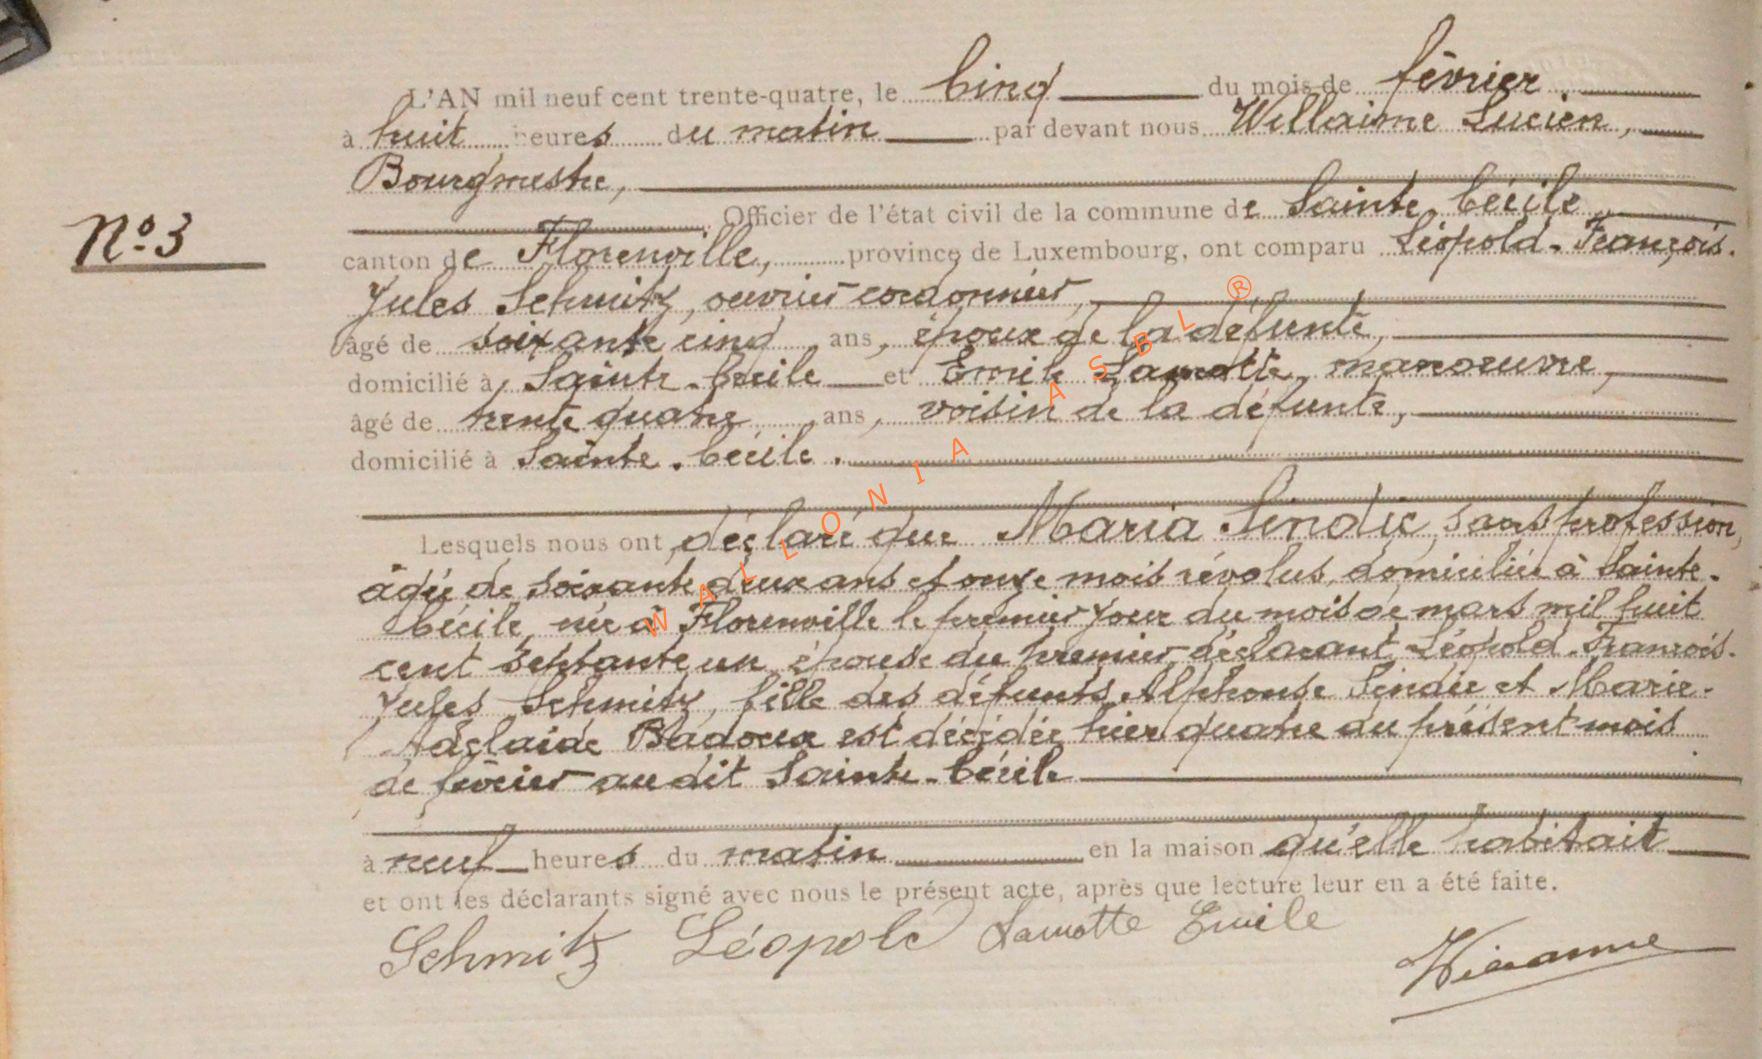 L'AN mil neuf cent trente-quatre, le Cinq du mois de février
à huit heures du matin par devant nous Willaime Lucien,
Bourgmestre,
Officier de l'état civil de la commune de Sainte Cécile
N° 3
canton de Florenville, province de Luxembourg, ont comparu Léopold-François-
Jules Schmitz, ouvrier cordonnier,
âgé de soixante cinq ans, époux de la défunte,
domicilié à Sainte-Cécile et Emile Lamotte, manoeuvre,
âgé de trente quatre ans, voisin de la défunte,
domicilié à Sainte-Cécile.
Lesquels nous ont déclaré que Maria Sindic, sans profession,
âgée de soixante deux ans et onze mois révolus, domiciliée à Sainte-
Cécile, née à Florenville le premier jour du mois de mars mil huit
cent septante un, épouse du premier déclarant Léopold-François-
Jules Schmitz, fille des défunts Alphonse Sindic et Marie-
Adélaïde Badoux est décédée hier quatre du présent mois
de février au dit Sainte-Cécile
à neuf heures du matin en la maison qu'elle habitait
et ont les déclarants signé avec nous le présent acte, après que lecture leur en a été faite.
Schmitz Léopold Lamotte Emile
WALLONIA ASBL ®